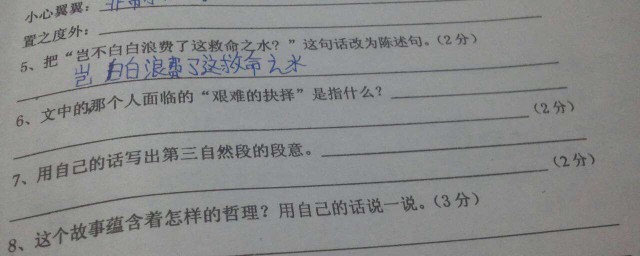 小心翼翼：
置之度外：
5、把“岂不白白浪费了这救命之水？”这句话改为陈述句。(2分)
岂 白白浪费了这救命之水
6、文中的那个人面临的“艰难的抉择”是指什么？
(2分)
7、用自己的话写出第三自然段的段意。
(2分)
8、这个故事蕴含着怎样的哲理？用自己的话说一说。(3分)